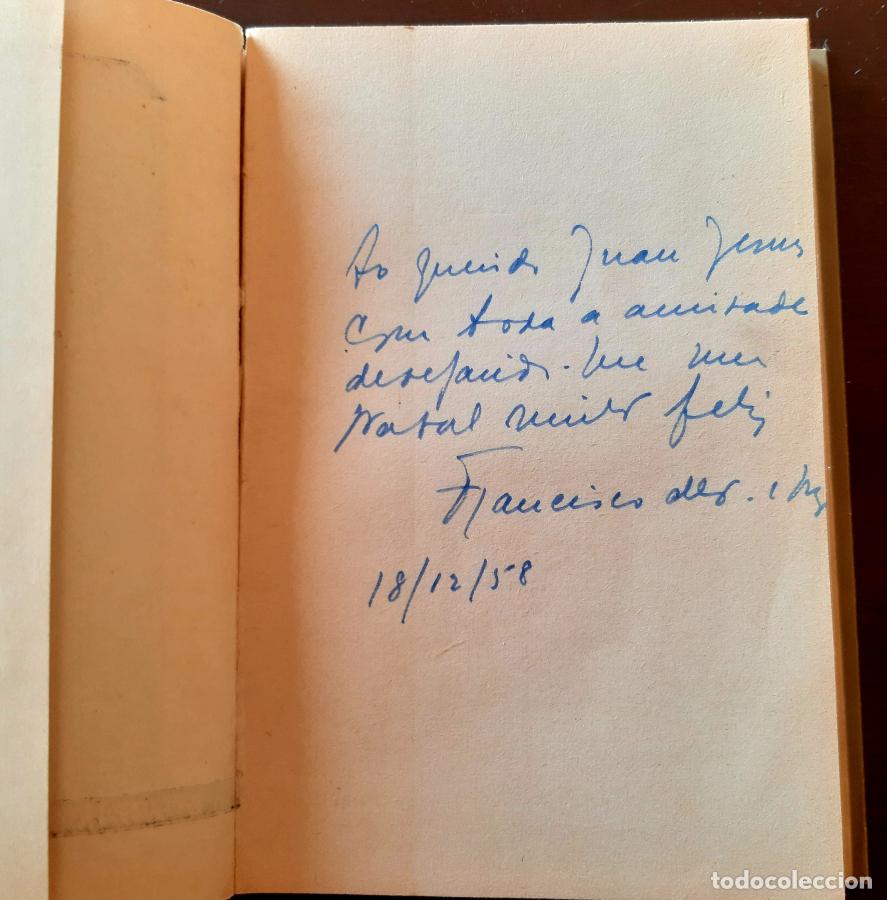 Ao querido Juan Jesus
Com toda a amizade
desejando-lhe um
Natal muito feliz
Francisco
18/12/58
todocoleccion